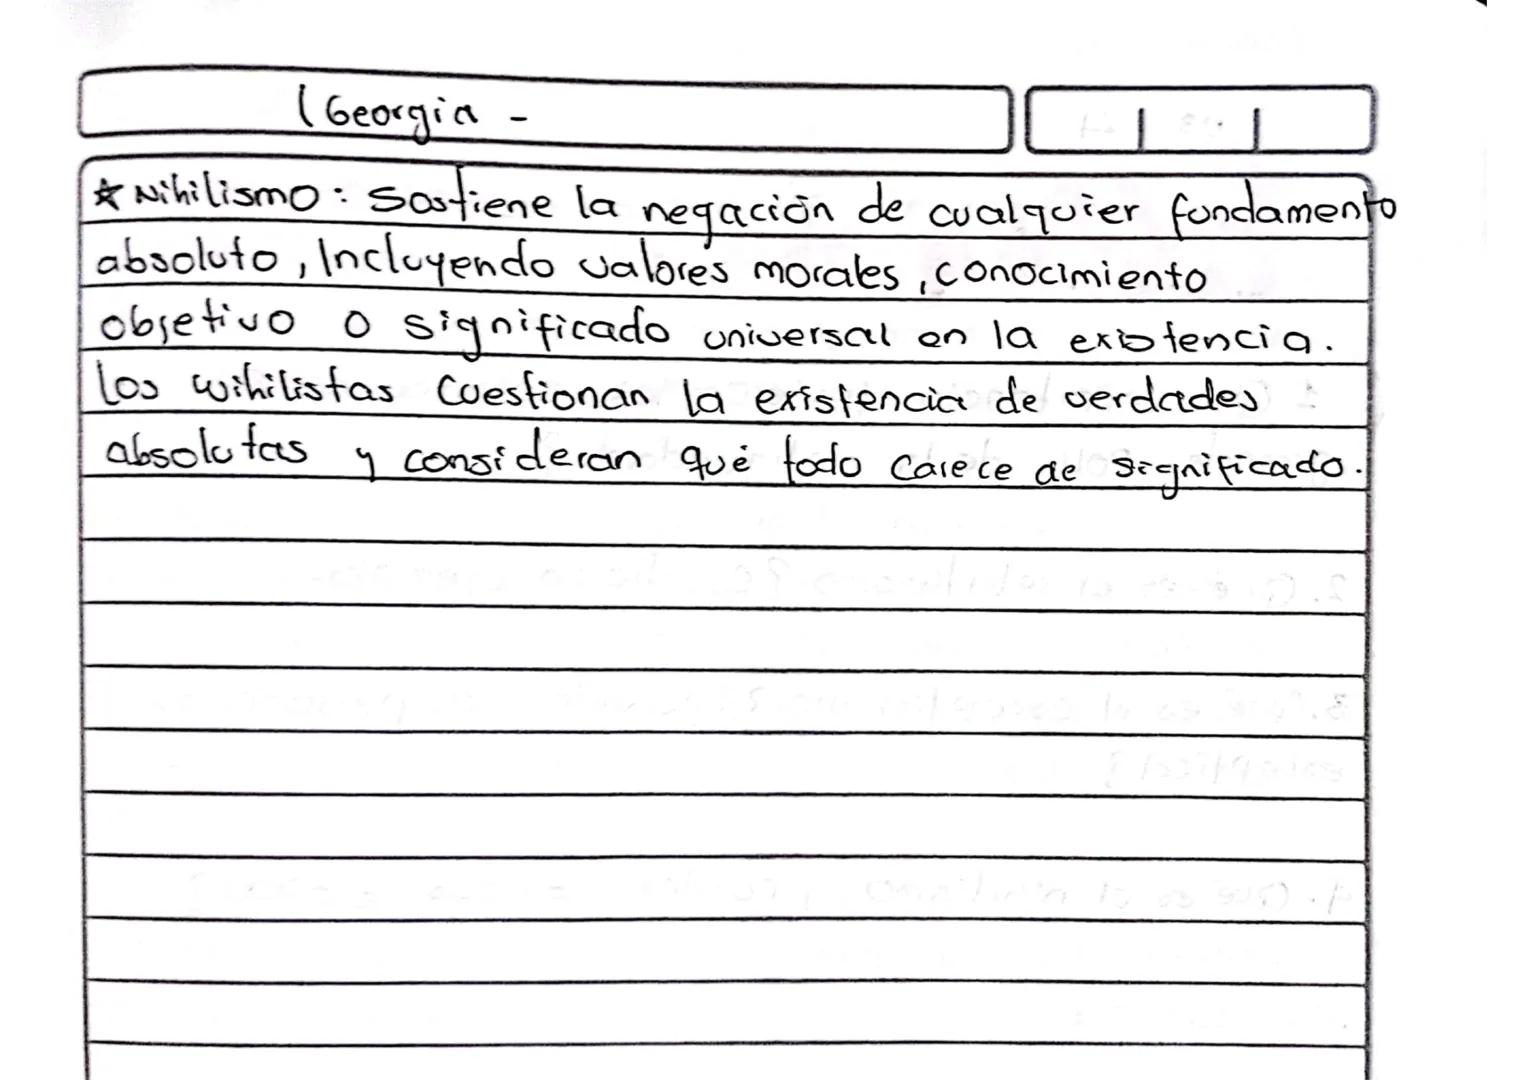 (Georgia -
☆ Nihilismo: Sostiene la negación de cualquier fundamento
absoluto, Incluyendo valores morales, conocimiento
objetivo o significado universal en la existencia.
Los wihilistas Cuestionan la existencia de verdades
absolutas y consideran qué todo carece de significado.